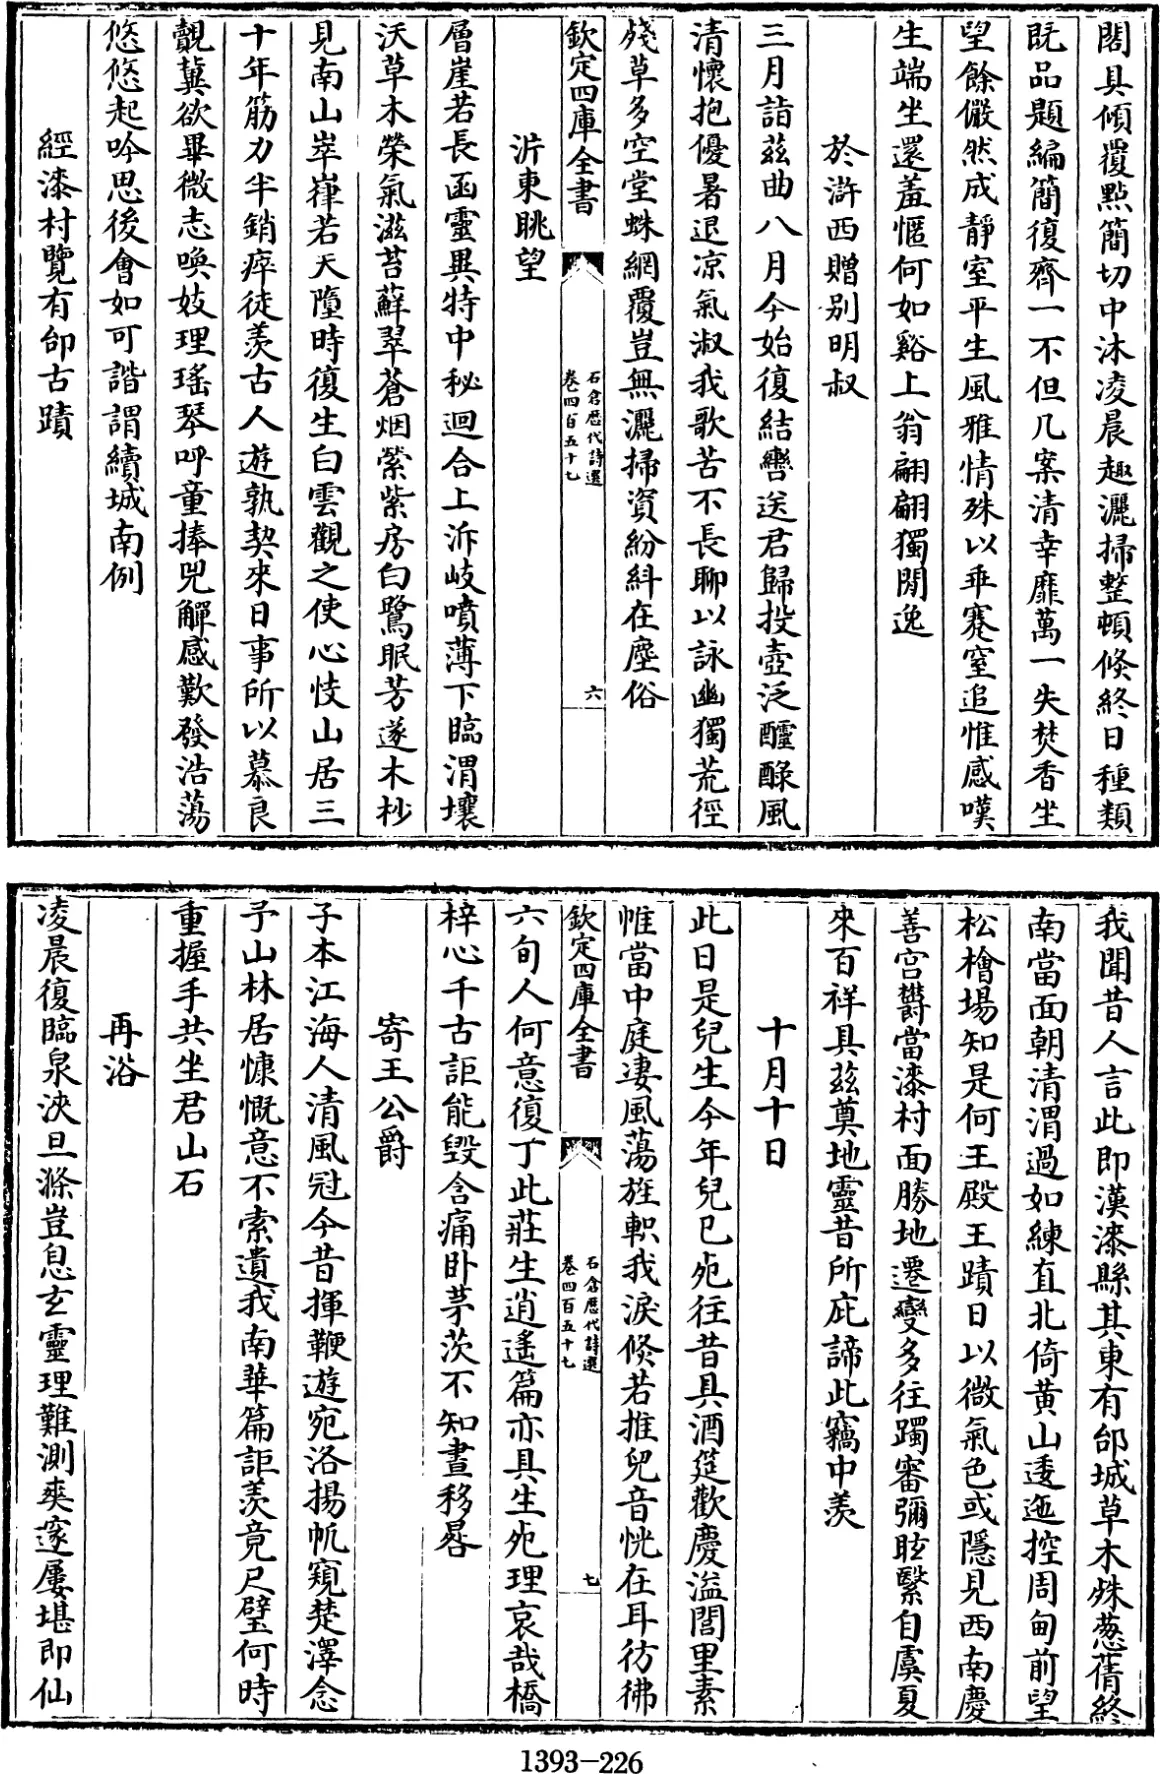 閣具傾覆點簡切中沐凌晨趣灑掃整頓倏終日種類
既品題編簡復齊一不但几案清幸靡萬一失焚香坐
望餘儼然成靜室平生風雅情殊以垂蹇窒追惟感嘆
生端坐還羞慪何如谿上翁翩翩獨閒逸
於滸西贈别明叔
三月詣兹曲八月今始復結轡送君歸投壺泛醽醁風
清懷抱優暑退凉氣淑我歌苦不長聊以詠幽獨荒徑
殘草多空堂蛛網覆豈無灑掃資紛糾在塵俗
欽定四庫全書
石倉歷代詩選
卷四百五十七
六
沜東眺望
層崖若長函靈異特中秘迴合上泝岐噴薄下臨渭壤
沃草木榮氣滋苔蘚翠蒼烟縈紫房白鷺眠芳遂木杪
見南山崒嵂若天隨時復生白雲觀之使心忮山居三
十年筋力半銷瘁徒羨古人遊孰契來日事所以慕良
覿冀欲畢微志喚妓理瑤琴呼童捧兕觶感歎發浩蕩
悠悠起吟思後會如可諧謂續城南例
經漆村覽有卻古蹟
我聞昔人言此即漢漆縣其東有邰城草木殊葱蒨終
南當面朝清渭過如練直北倚黄山逶迤控周甸前望
松檜場知是何王殿王蹟日以微氣色或隱見西南慶
善宫鬱當漆村面勝地遷變多往躅審彌眩繄自虞夏
來百祥具兹奠地靈昔所庇諦此竊中羨
十月十日
此日是兒生今年兒已死往昔具酒筵歡慶溢閭里素
帷當中庭凄風蕩旌軹我淚倏若推兒音恍在耳彷彿
欽定四庫全書
石倉歷代詩選
卷四百五十七
七
六旬人何意復丁此莊生逍遙篇亦具生死理哀哉橋
梓心千古詎能毀含痛卧茅茨不知晝移晷
寄王公爵
子本江海人清風冠今昔揮鞭遊宛洛揚帆窺楚澤念
予山林居慷慨意不索遺我南華篇詎羨竟尺璧何時
重握手共坐君山石
再浴
凌晨復臨泉浹旦滌豈息玄靈理難測奭邃屢堪即仙
1393-226